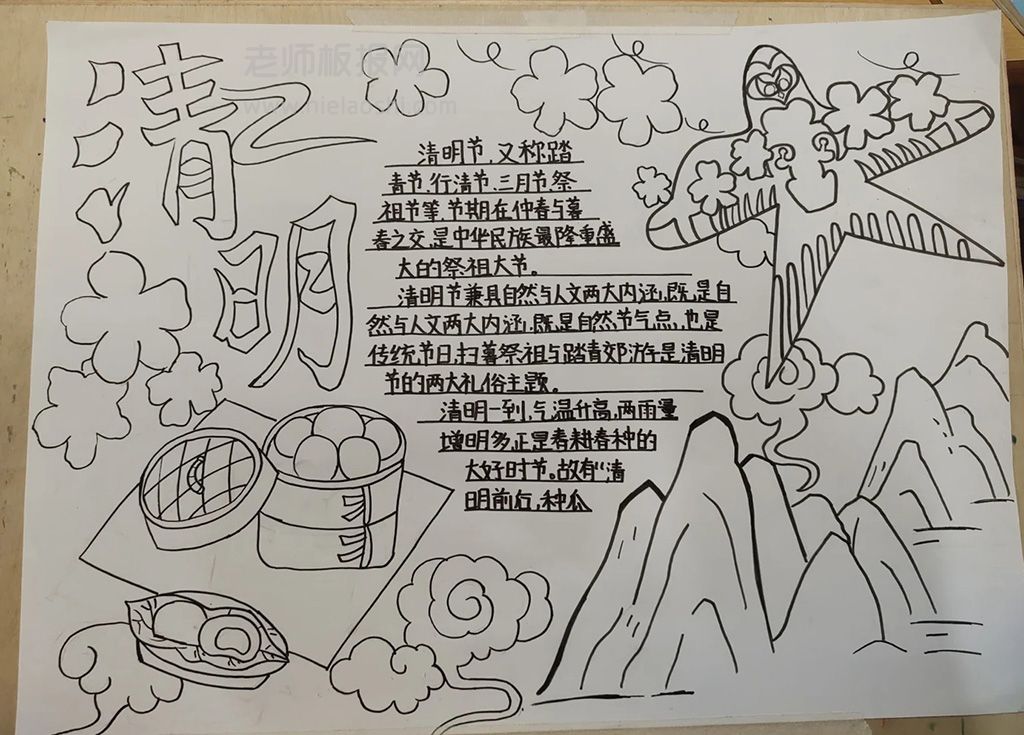 清明
老师板报网
清明节,又称踏
青节、行清节、三月节、祭
祖节等,节期在仲春与暮
春之交,是中华民族最隆重盛
大的祭祖大节。
清明节兼具自然与人文两大内涵,既是自
然与人文两大内涵,既是自然节气点,也是
传统节日,扫墓祭祖与踏青郊游是清明
节的两大礼俗主题。
清明一到,气温升高,雨量
增多,正是春耕春种的
大好时节。故有“清
明前后,种瓜